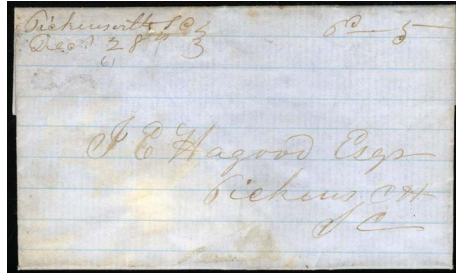 Pickensville S C
Decr 28th
61
Pd 5
J E Hagood Esqr
Pickens C H
S C